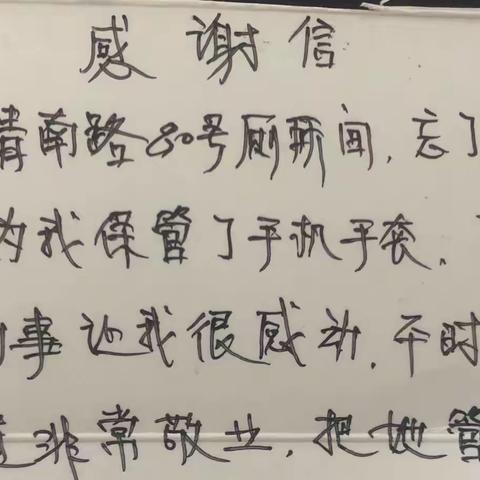 感谢信
清南路80号厕所间，忘了
为我保管了手机手套，
事让我很感动，平时
非常敬业，把她管